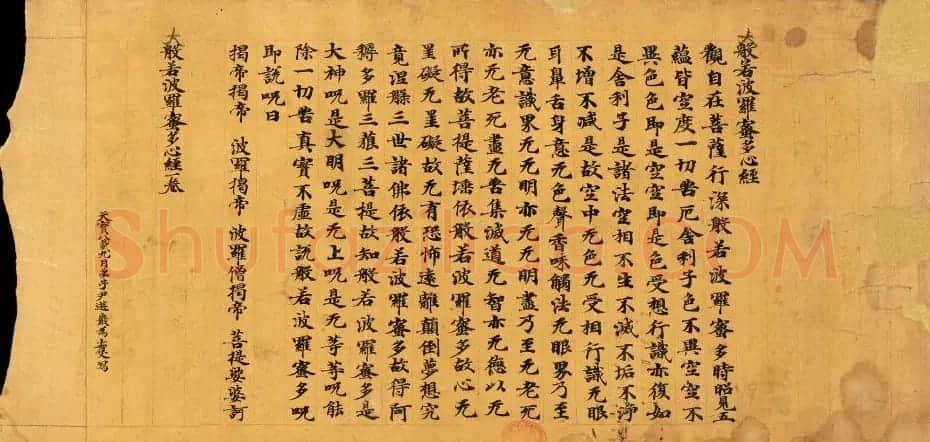 大般若波羅蜜多心經
觀自在菩薩行深般若波羅蜜多時照見五
蘊皆空度一切苦厄舍利子色不異空空不
異色色即是空空即是色受想行識亦復如
是舍利子是諸法空相不生不滅不垢不淨
不增不減是故空中无色无受相行識无眼
耳鼻舌身意无色聲香味觸法无眼界乃至
无意識界无无明亦无无明盡乃至无老死
亦无老死盡无苦集滅道无智亦无德以无
所得故菩提薩埵依般若波羅蜜多故心无
罣礙无罣礙故无有恐怖遠離顛倒夢想究
竟涅槃三世諸佛依般若波羅蜜多故得阿
耨多羅三藐三菩提故知般若波羅蜜多是
大神呪是大明呪是无上呪是无等等呪能
除一切苦真實不虛故說般若波羅蜜多呪
即說呪曰
揭帝揭帝 波羅揭帝 波羅僧揭帝 菩提娑婆訶
大般若波羅蜜多心經一卷
九月弟子尹